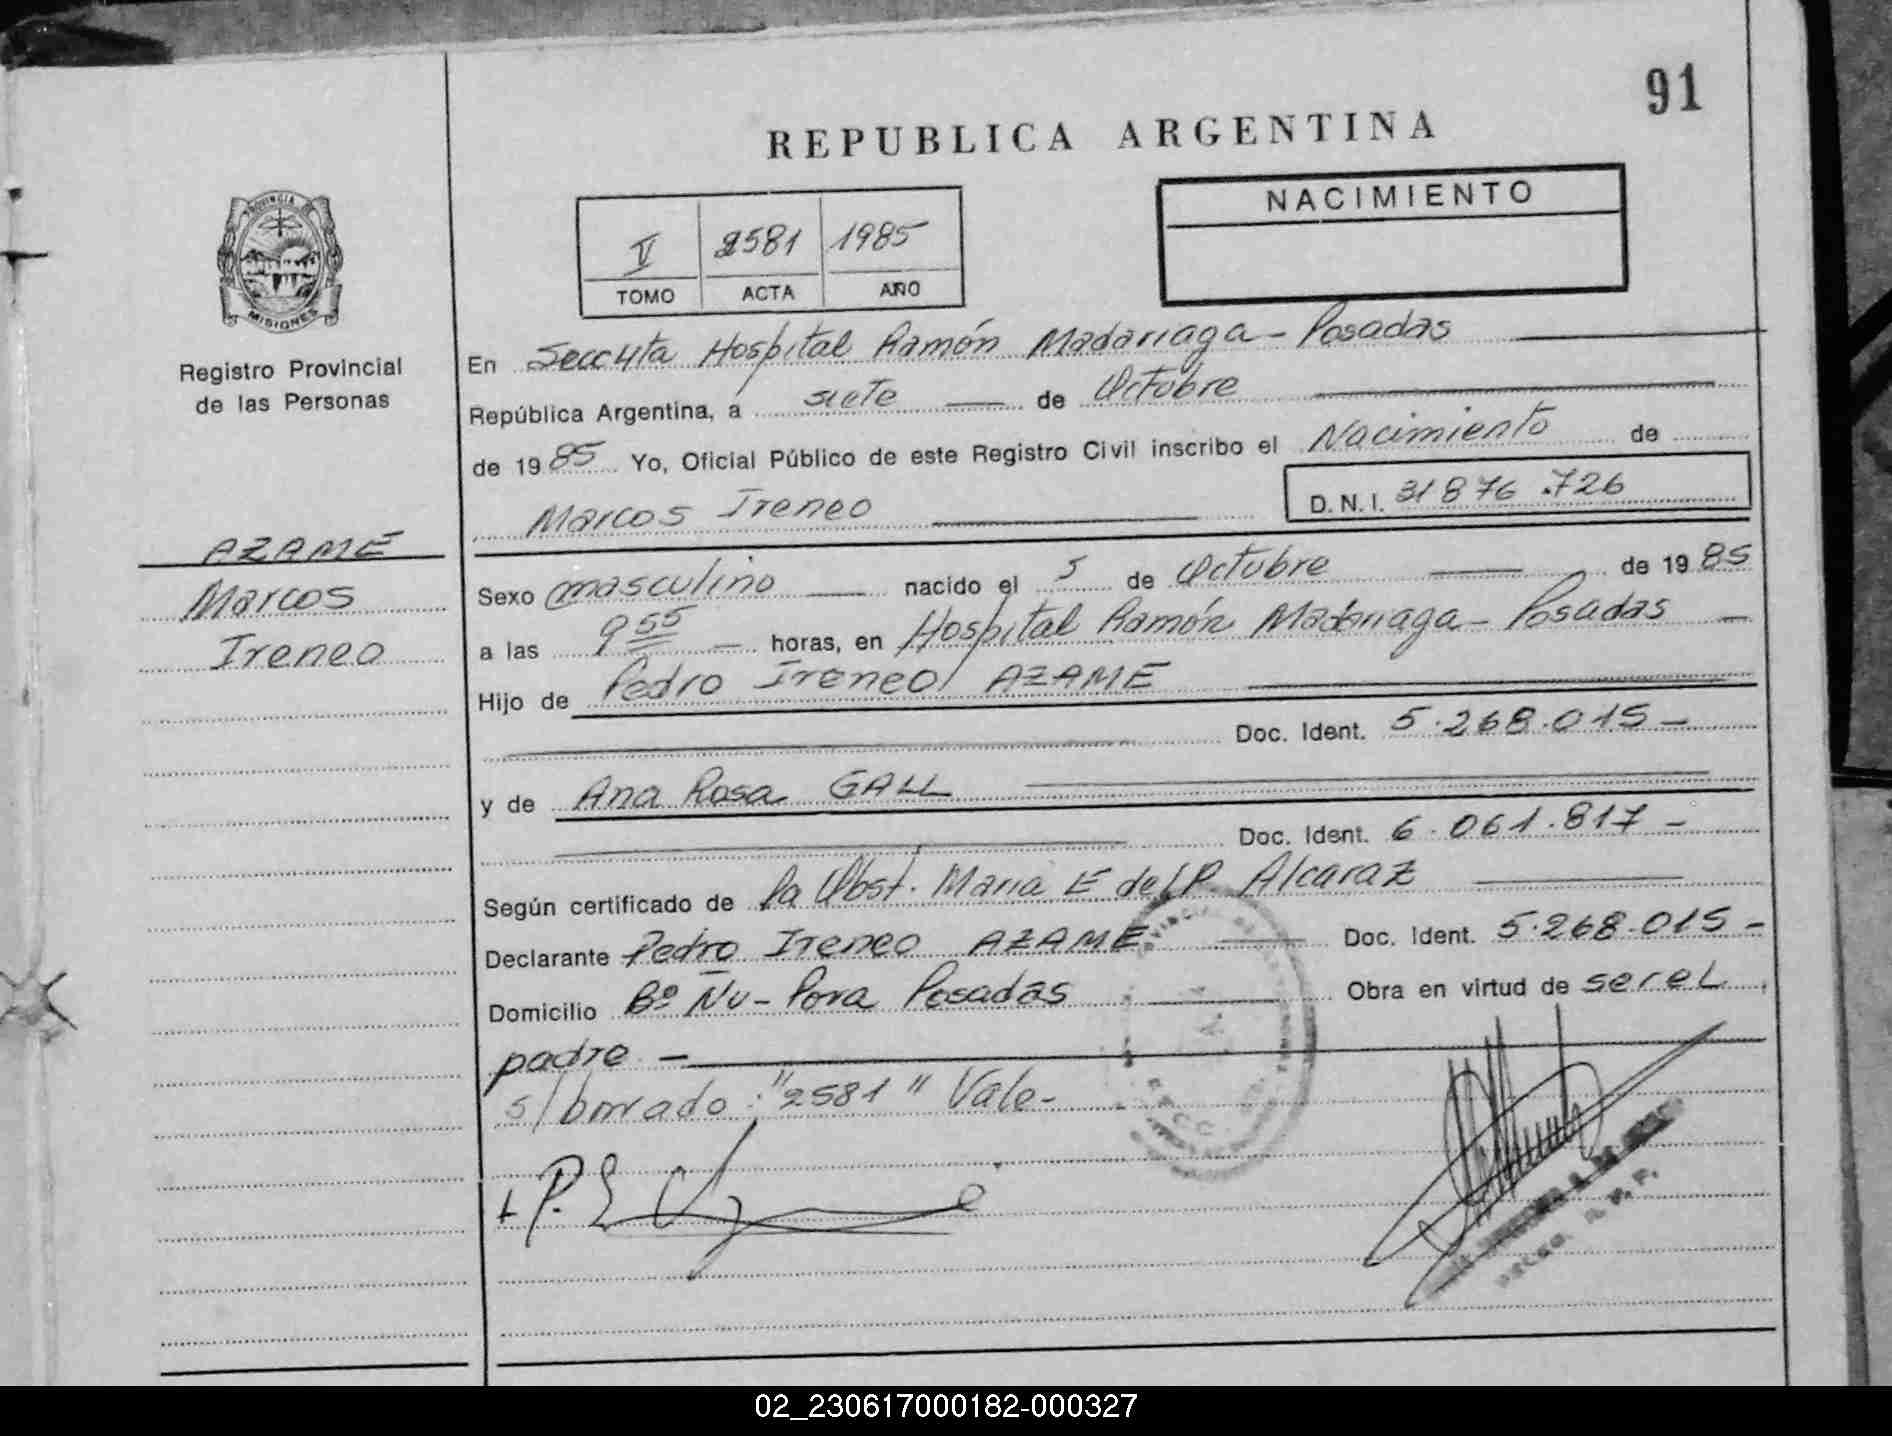 91
REPUBLICA ARGENTINA
PROVINCIA DE
MISIONES
Registro Provincial
de las Personas
V 2581 1985
TOMO ACTA AÑO
NACIMIENTO
En Secc 4ta Hospital Ramón Madariaga - Posadas
República Argentina, a siete de Octubre
de 1985 Yo, Oficial Público de este Registro Civil inscribo el Nacimiento de
Marcos Ireneo D.N.I. 31876.726
AZAME
Marcos
Ireneo
Sexo masculino nacido el 5 de Octubre de 1985
a las 9 55 horas, en Hospital Ramón Madariaga - Posadas
Hijo de Pedro Ireneo AZAME
Doc. Ident. 5.268.015-
y de Ana Rosa GALL
Doc. Ident. 6.061.817-
Según certificado de la Obst. Maria E del P. Alcaraz
Declarante Pedro Ireneo AZAME Doc. Ident. 5.268.015-
Domicilio Bº Ñu-Pora Posadas Obra en virtud de ser el
padre -
s/borrado: "2581" Vale-
02_230617000182-000327